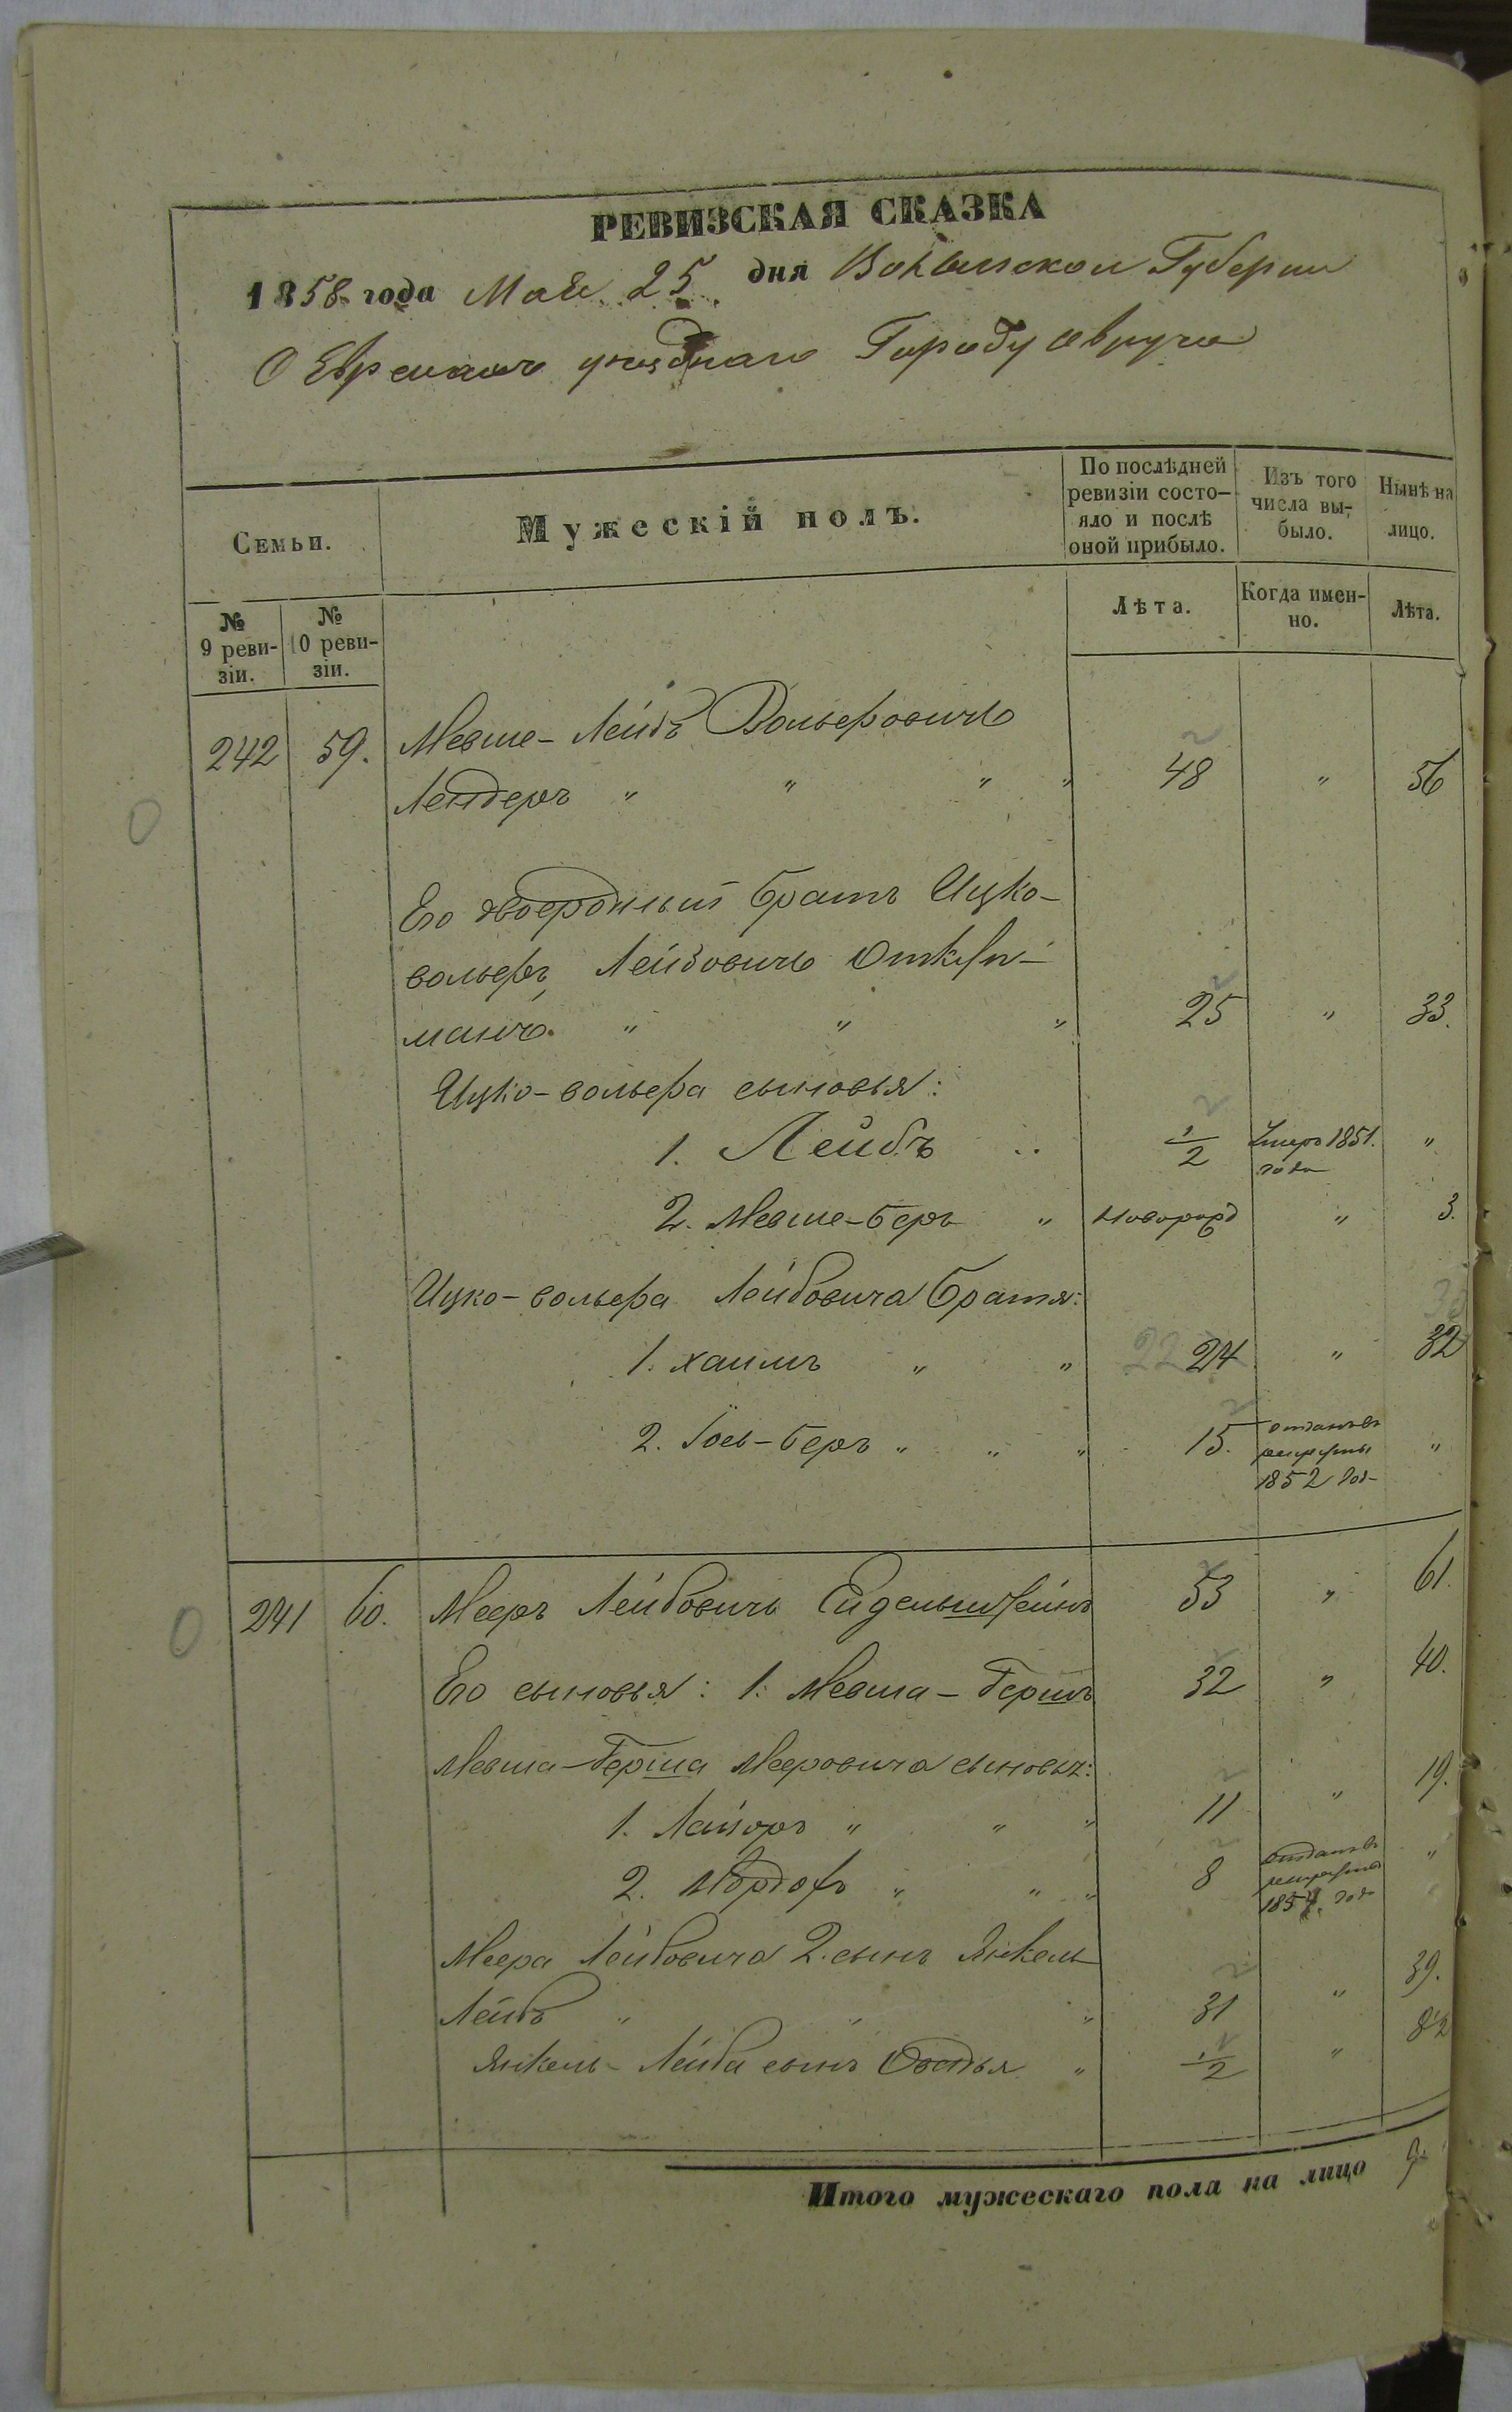 РЕВИЗСКАЯ СКАЗКА
1858 года Мая 25 дня Волынской Губернии
О Евреяхъ уезднаго Городу Овруча
Семьи.
Мужескій полъ.
По послѣдней ревизіи состо-яло и послѣ оной прибыло.
Изъ того числа вы-было.
Нынѣ на лицо.
№ 9 реви-зіи.
№ 10 реви-зіи.
Лѣта.
Когда имен-но.
Лѣта.
242 59. Мевше-Лейбъ Вольфовичъ
Лендеръ " " " 48 " 56
Его двоеродный братъ Ицко-
вольфъ Лейбовичъ
манъ. " " " 25 " 33.
Ицко-вольфа сыновья:
1. Лейбъ 1/2 Умеръ 1851. года "
2. Мевше-беръ " новорожд " 3.
Ицко-вольфа Лейбовича братья:
1. хаимъ " " 22 24 " 32
2. Іось-беръ " " " 15. отданъ въ рекруты 1852 год "
241 60. Мееръ Лейбовичъ Ейдельштейнъ 53 " 61.
Его сыновья: 1. Мевша-Гершъ 32 " 40.
Мевша-Герша Мееровича сыновья:
1. Лайзоръ " " " 11 " 19.
2. " " " 8 отданъ въ рекруты года "
Меера Лейбовича 2. сынъ Янкель
Лейбъ " " " 31 " 39.
Янкель-Лейба сынъ Овадья " 1/2 " 8 1/2
Итого мужескаго пола на лицо 9.